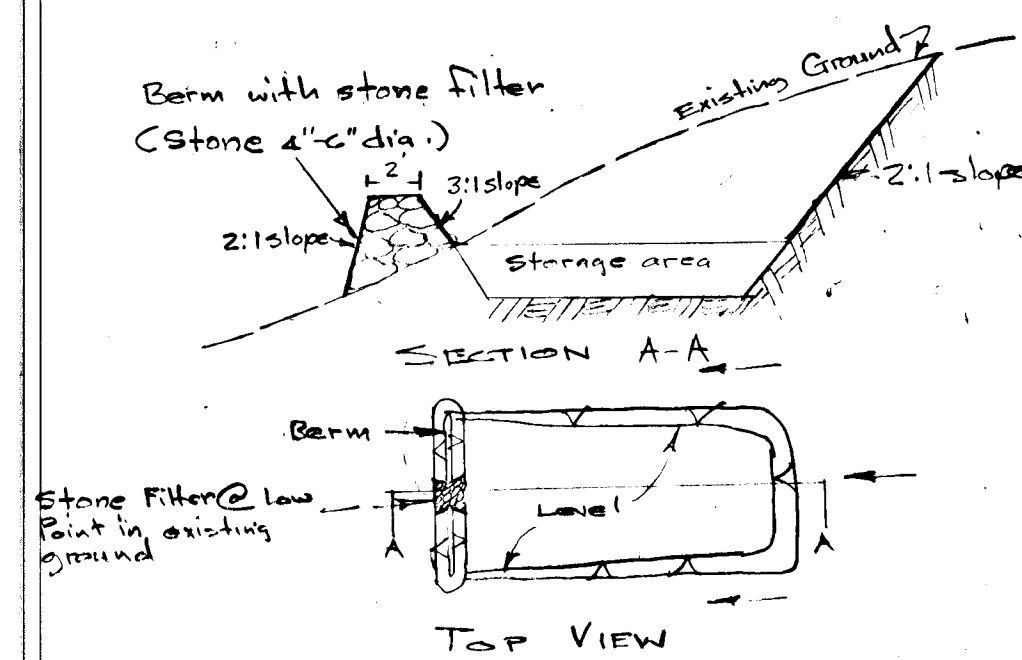 Berm with stone filter
(Stone 4"-6" dia.)
2'
3:1 slope
2:1 slope
Existing Ground
2:1 slope
Storage area
SECTION A-A
Berm
Stone Filter @ low
Point in existing
ground
Level
A
A
TOP VIEW